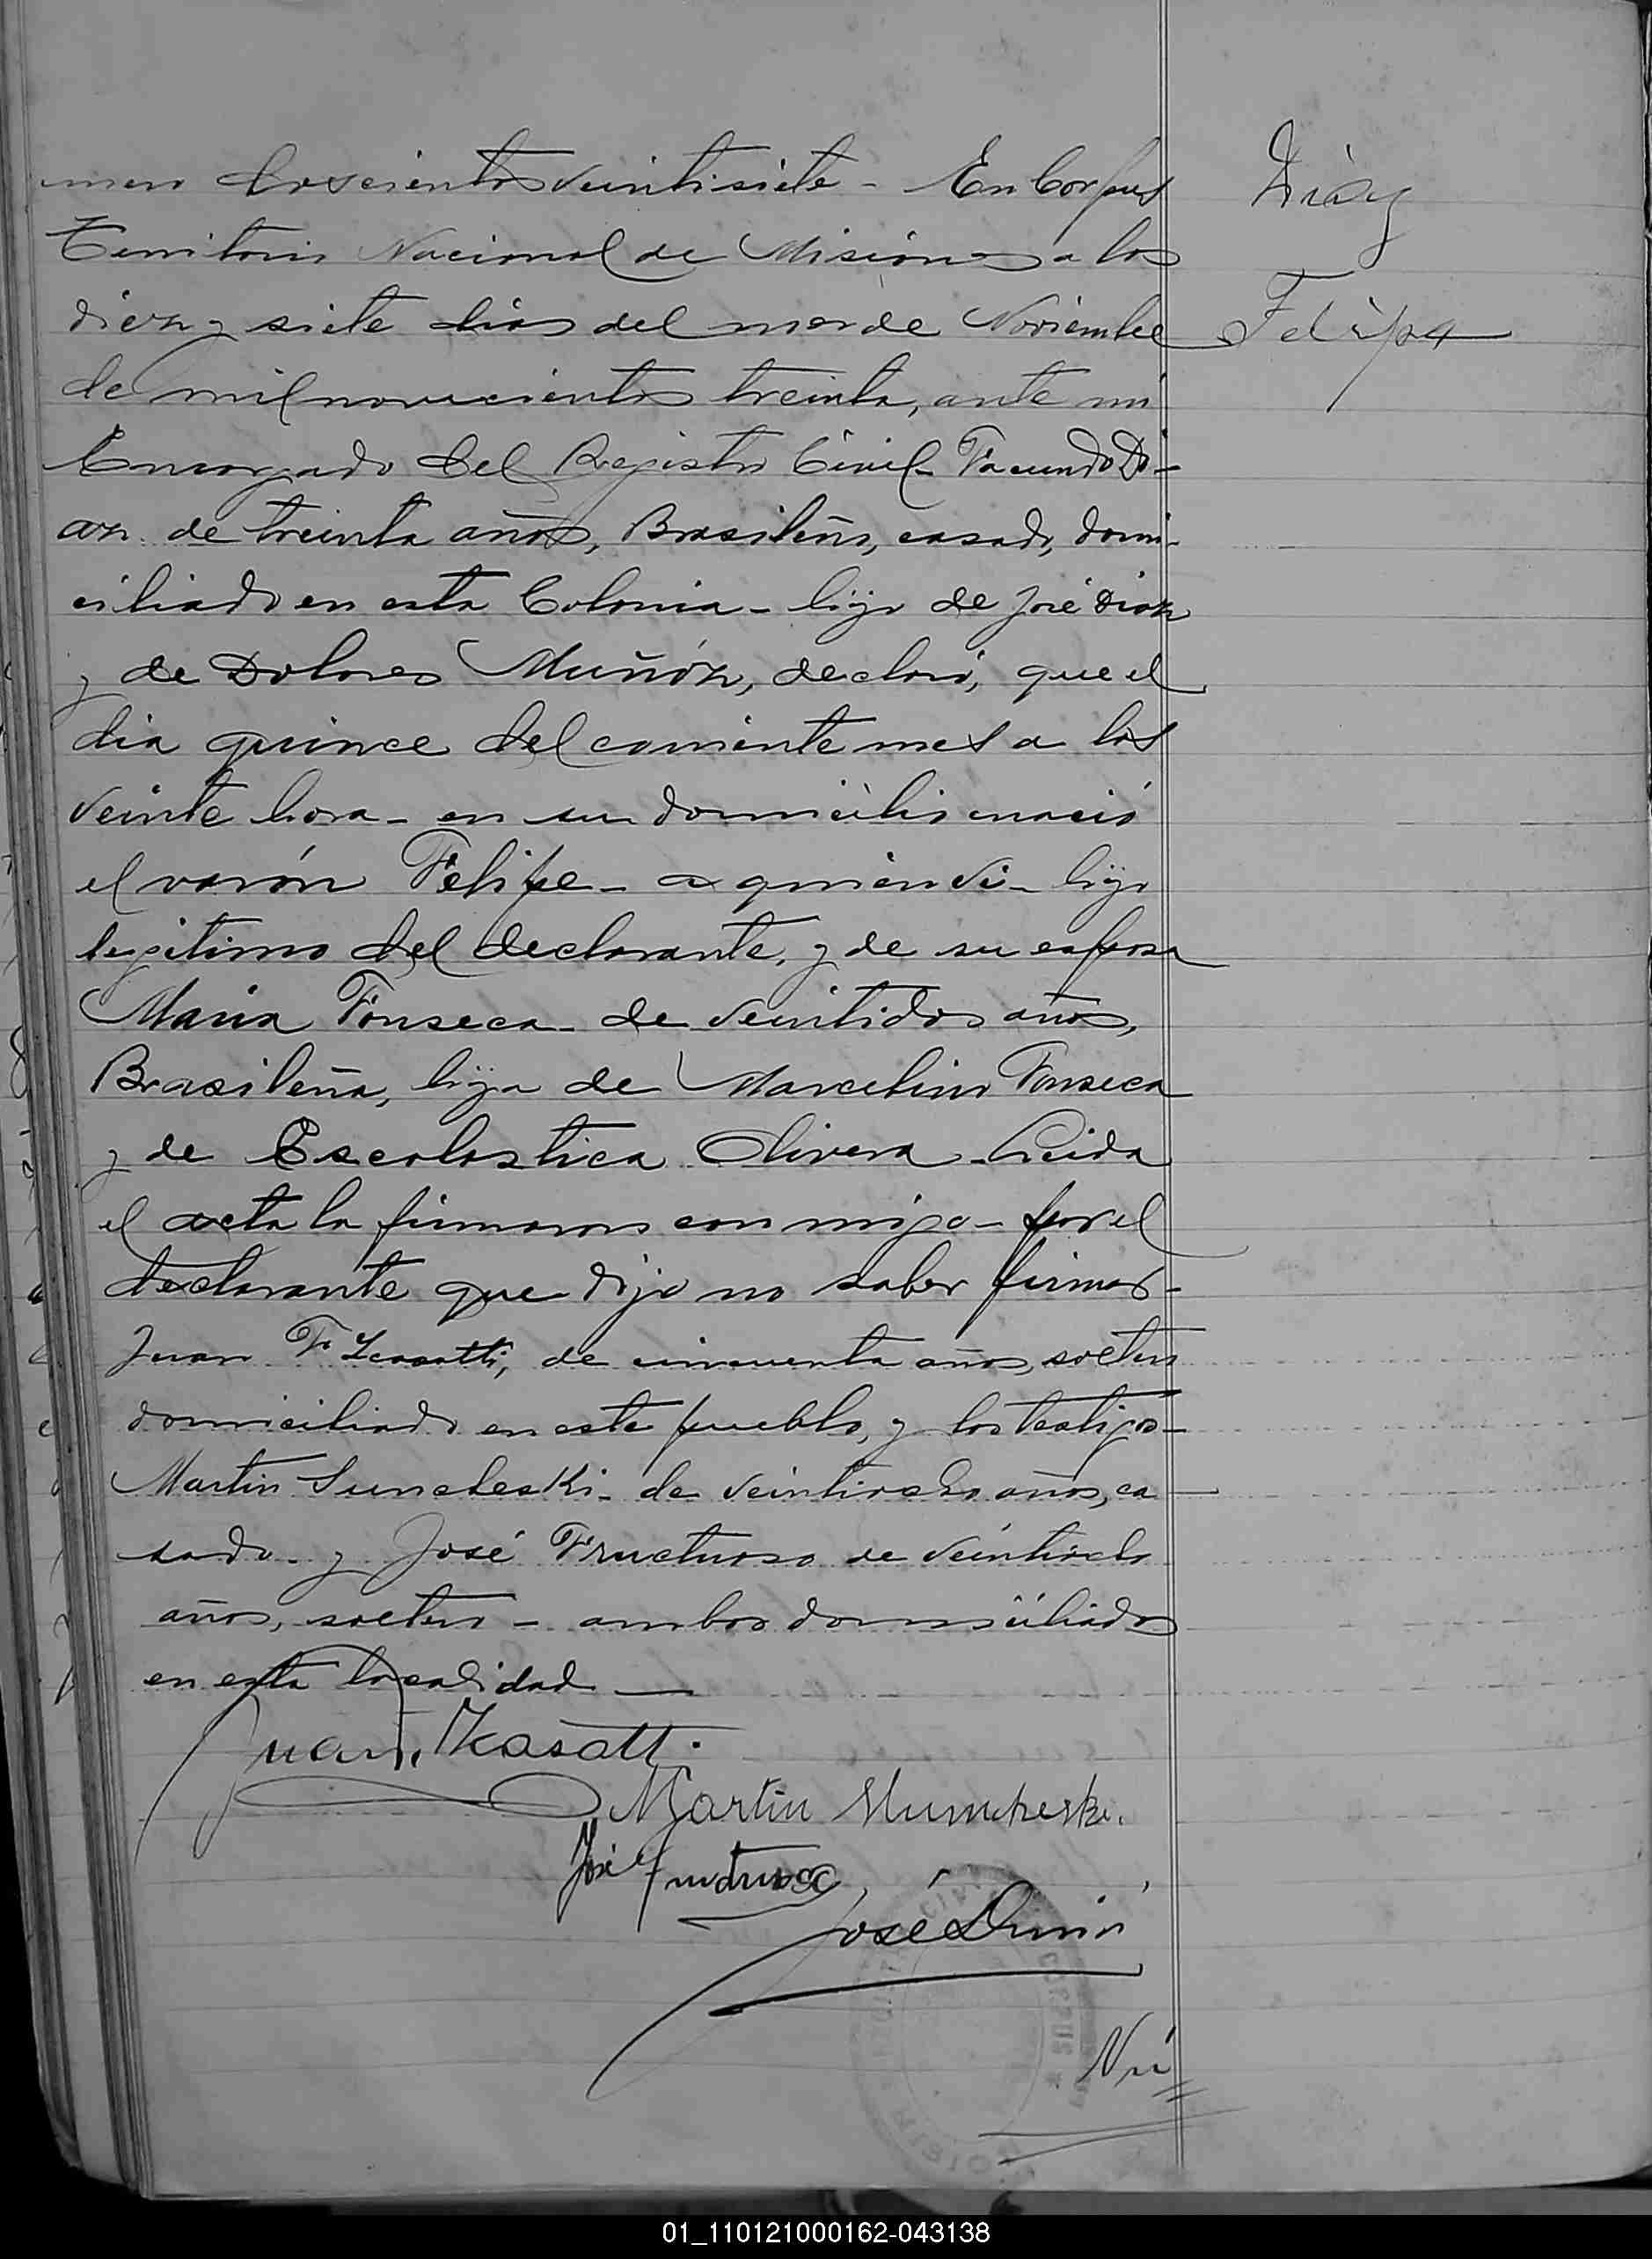 mero doscientos veintisiete - En Corpus
Díaz
Territorio Nacional de Misiones a los
diez y siete dias del mes de Noviembre
Felipa
de mil novecientos treinta, ante mi
Encargado del Registro Civil - Facundo Di-
az de treinta años, Brasileño, casado, domi-
ciliado en esta Colonia - hijo de José Diaz
y de Dolores Muñóz, declaró, que el
dia quince del corriente mes a las
veinte hora - en su domicilio nació
el varón Felipe - a quien vi - hijo
legitimo del declarante, y de su esposa
Maria Fonseca - de veintidos años,
Brasileña, hija de Marcelino Fonseca
y de Escolastica Olivera - Leida
el acta la firmaron con migo - por el
declarante que dijo no saber firmar -
Juan F. de cincuenta años, soltero
domiciliado en este pueblo, y los testigos -
Martin de veintiocho años, ca
sado - y José Fructuoso de veintiocho
años, soltero - ambos domiciliados
en esta localidad -
Juan F.
Martin
José Fructuoso
José
CORPUS
Nú
01_110121000162-043138